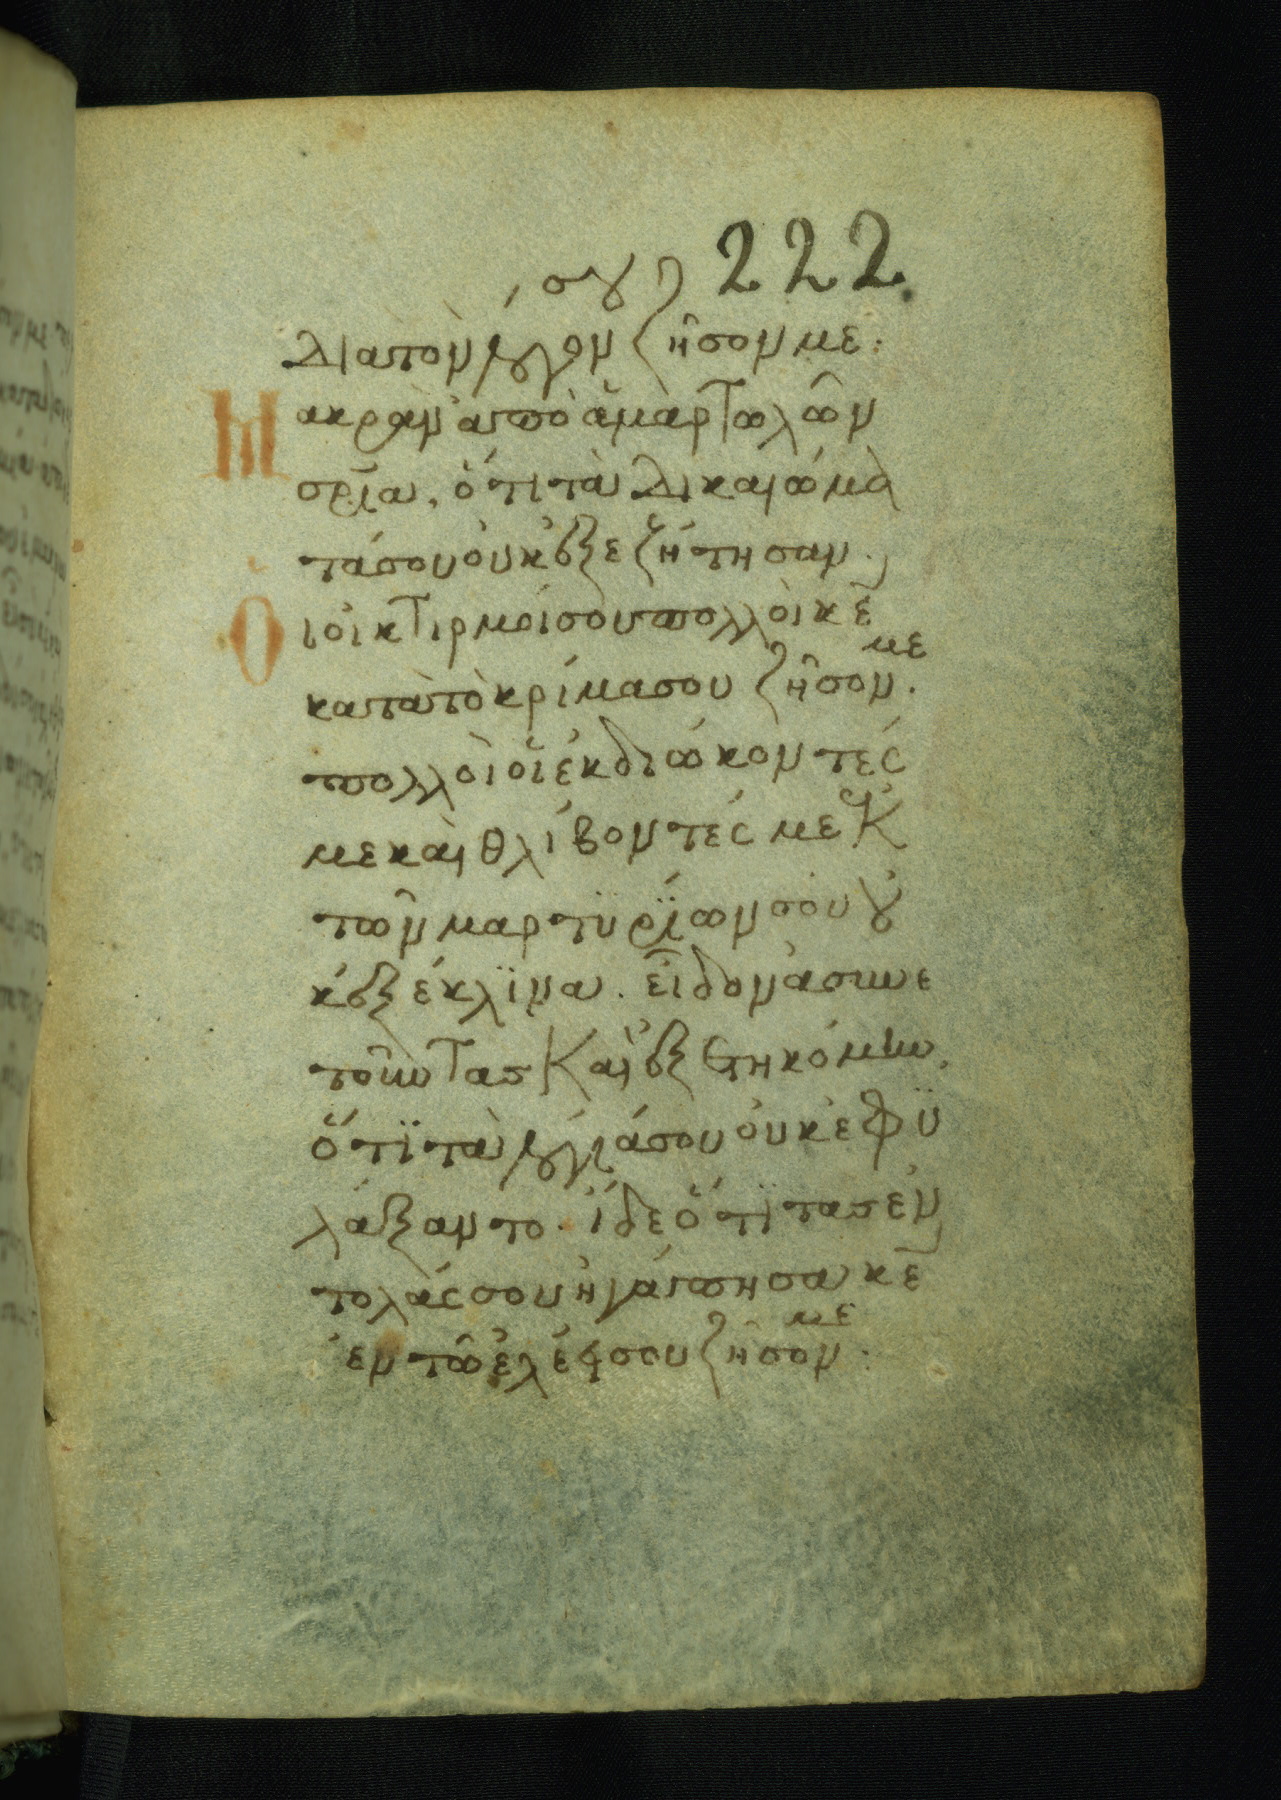 , σγζ 222.
Διατὸν λόγον ζῆσον με:
Μακρὰν ἀπὸ ἁμαρτωλῶν
σρία, ὅτι τὰ Δικαιώμα
τά σου οὐκ ἐξεζήτησαν.
Ὃι οἰκτιρμοί σου πολλοὶ κε̄
κατὰ τὸ κρίμα σου ζῆσόν με.
πολλοὶ οἱ ἐκδιώκοντές
με καὶ θλίβοντές με ἐκ
τῶν μαρτϋρϊῶν σου οὐ
κ ἐξέκλϊνα. εἶδον ἀσυνε
τοῦντας Καὶ ἐξετηκόμην,
ὅτϊ τὰ λόγιά σου οὐκ ἐφϋ
λάξαντο. ἴδε ὅτϊ τὰς ἐν
τολάς σου ἠγάπησα κε̄
ἐν τῶ ἐλέει σου ζῆσόν με.